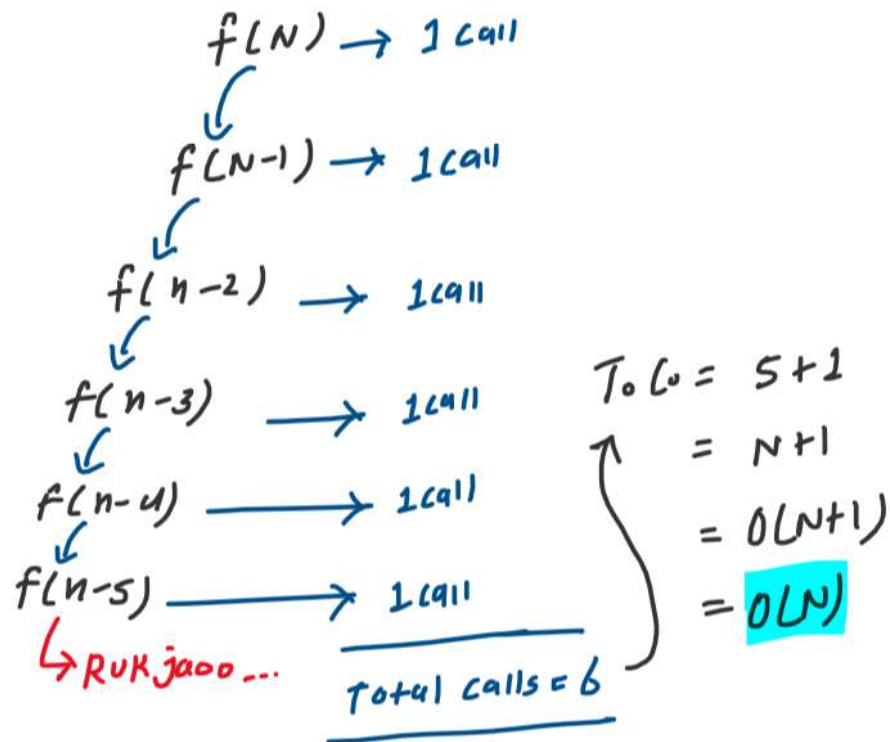 f(N) → 1 call
f(N-1) → 1 call
f(n-2) → 1 call
f(n-3) → 1 call
f(n-4) → 1 call
f(n-5) → 1 call
Rukjaoo...
Total calls = 6
T.C. = 5+1
= N+1
= O(N+1)
= O(N)